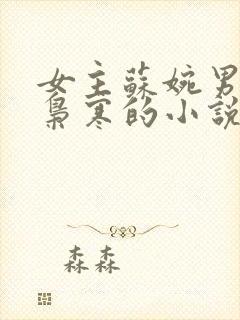 女主蘇婉男
梟寒的小說
森森